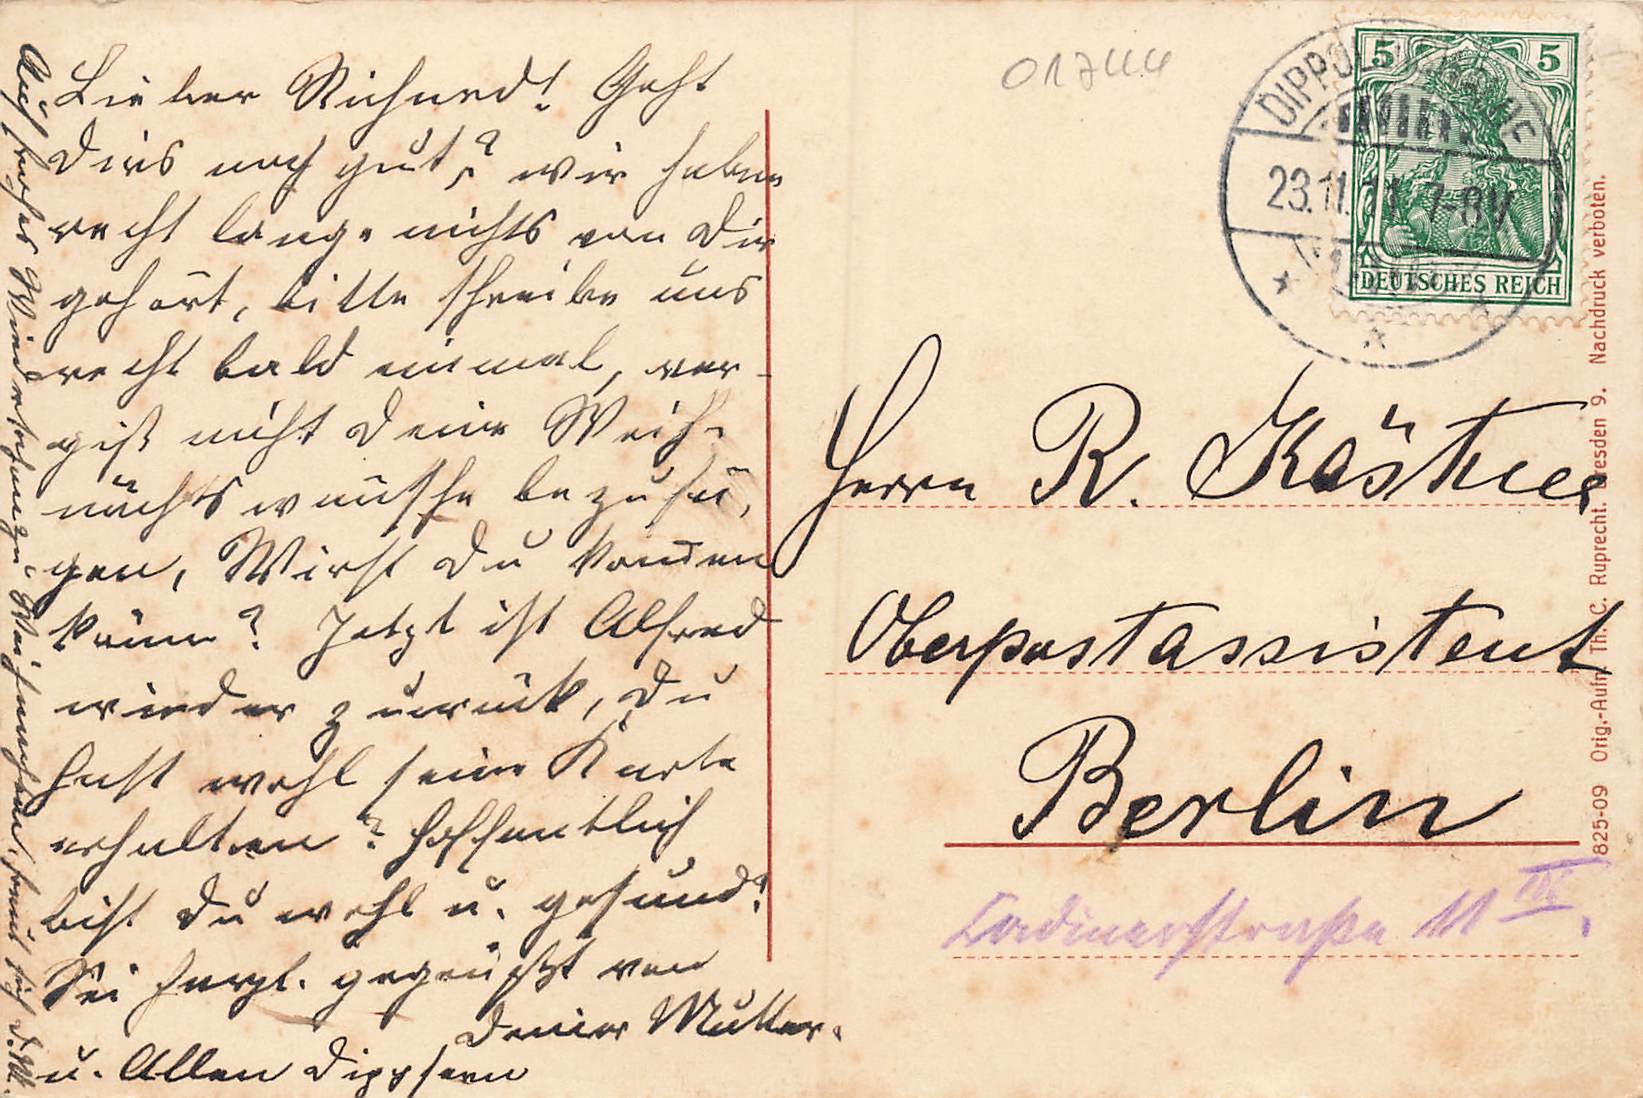 Lieber Richard! Geht
Dirs noch gut? wir haben
recht lange nichts von Dir
gehört, bitte schreibe uns
recht bald einmal, ver-
giß nicht Deine Weih-
nachtswünsche bezufü-
gen, Wirst Du kommen
könn? Jetzt ist Alfred
wieder zurück, Du
hast wohl seine Karte
erhalten? Hoffentlich
bist Du wohl u. gesund!
Sei herzl. gegrüßt von
Deiner Mutter.
u. Allen Dippsern
Auf frohes Wiedersehen zu Weihnachten, freut sich d. M.
01744
DIPPOLDISWALDE
23.11.11. 7-8V
5 5
DEUTSCHES REICH
Herrn R. Kästner
Oberpostassistent
Berlin
Cadinerstraße 11 III.
825-09 Orig.-Aufn. Th. C. Ruprecht. Dresden 9. Nachdruck verboten.